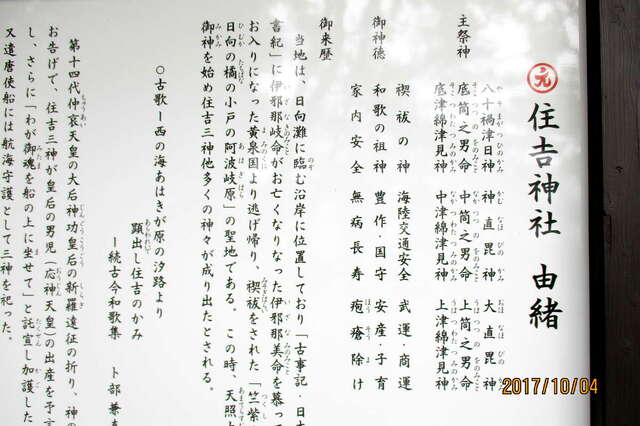 元 住吉神社 由緒
主祭神
八十禍津日神 神直毘神 大直毘神
底筒之男命 中筒之男命 上筒之男命
底津綿津見神 中津綿津見神 上津綿津見神
御神徳
禊祓の神 海陸交通安全 武運・商運
和歌の祖神 豊作・国守 安産・子育
家内安全 無病長寿 疱瘡除け
御来歴
当地は、日向灘に臨む沿岸に位置しており「古事記・日本
書紀」に伊邪那岐命がお亡くなりなった伊邪那美命を慕って
お入りになった黄泉国より逃げ帰り、禊祓をされた「竺紫
日向の橘の小戸の阿波岐原」の聖地である。この時、天照
御神を始め住吉三神他多くの神々が成り出たとされる。
○古歌ー西の海あはきが原の汐路より
顕出し住吉のかみ
ー続古今和歌集 卜部兼直
第十四代仲哀天皇の大后神功皇后の新羅遠征の折り、神の
お告げで、住吉三神が皇后の男児（応神天皇）の出産を予言
し、さらに「わが御魂を船の上に坐せて」と託宣し加護した
又遣唐使船には航海守護として三神を祀った。
2017/10/04